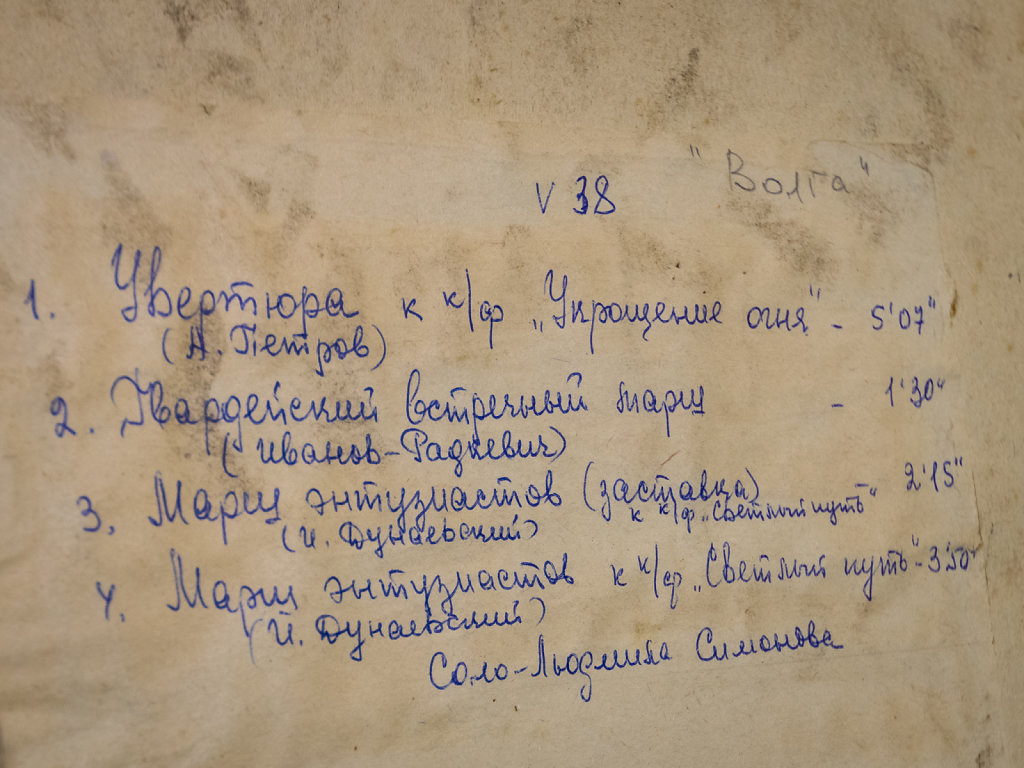 "Волга"
V 38
1. Увертюра к к/ф „Укрощение огня" - 5'07"
(А. Петров)
2. Гвардейский встречный марш - 1'30"
(Иванов-Радкевич)
3. Марш энтузиастов (заставка) 2'15"
к к/ф „Светлый путь"
(И. Дунаевский)
4. Марш энтузиастов к к/ф „Светлый путь" - 3'50"
(И. Дунаевский)
Соло-Людмила Симонова